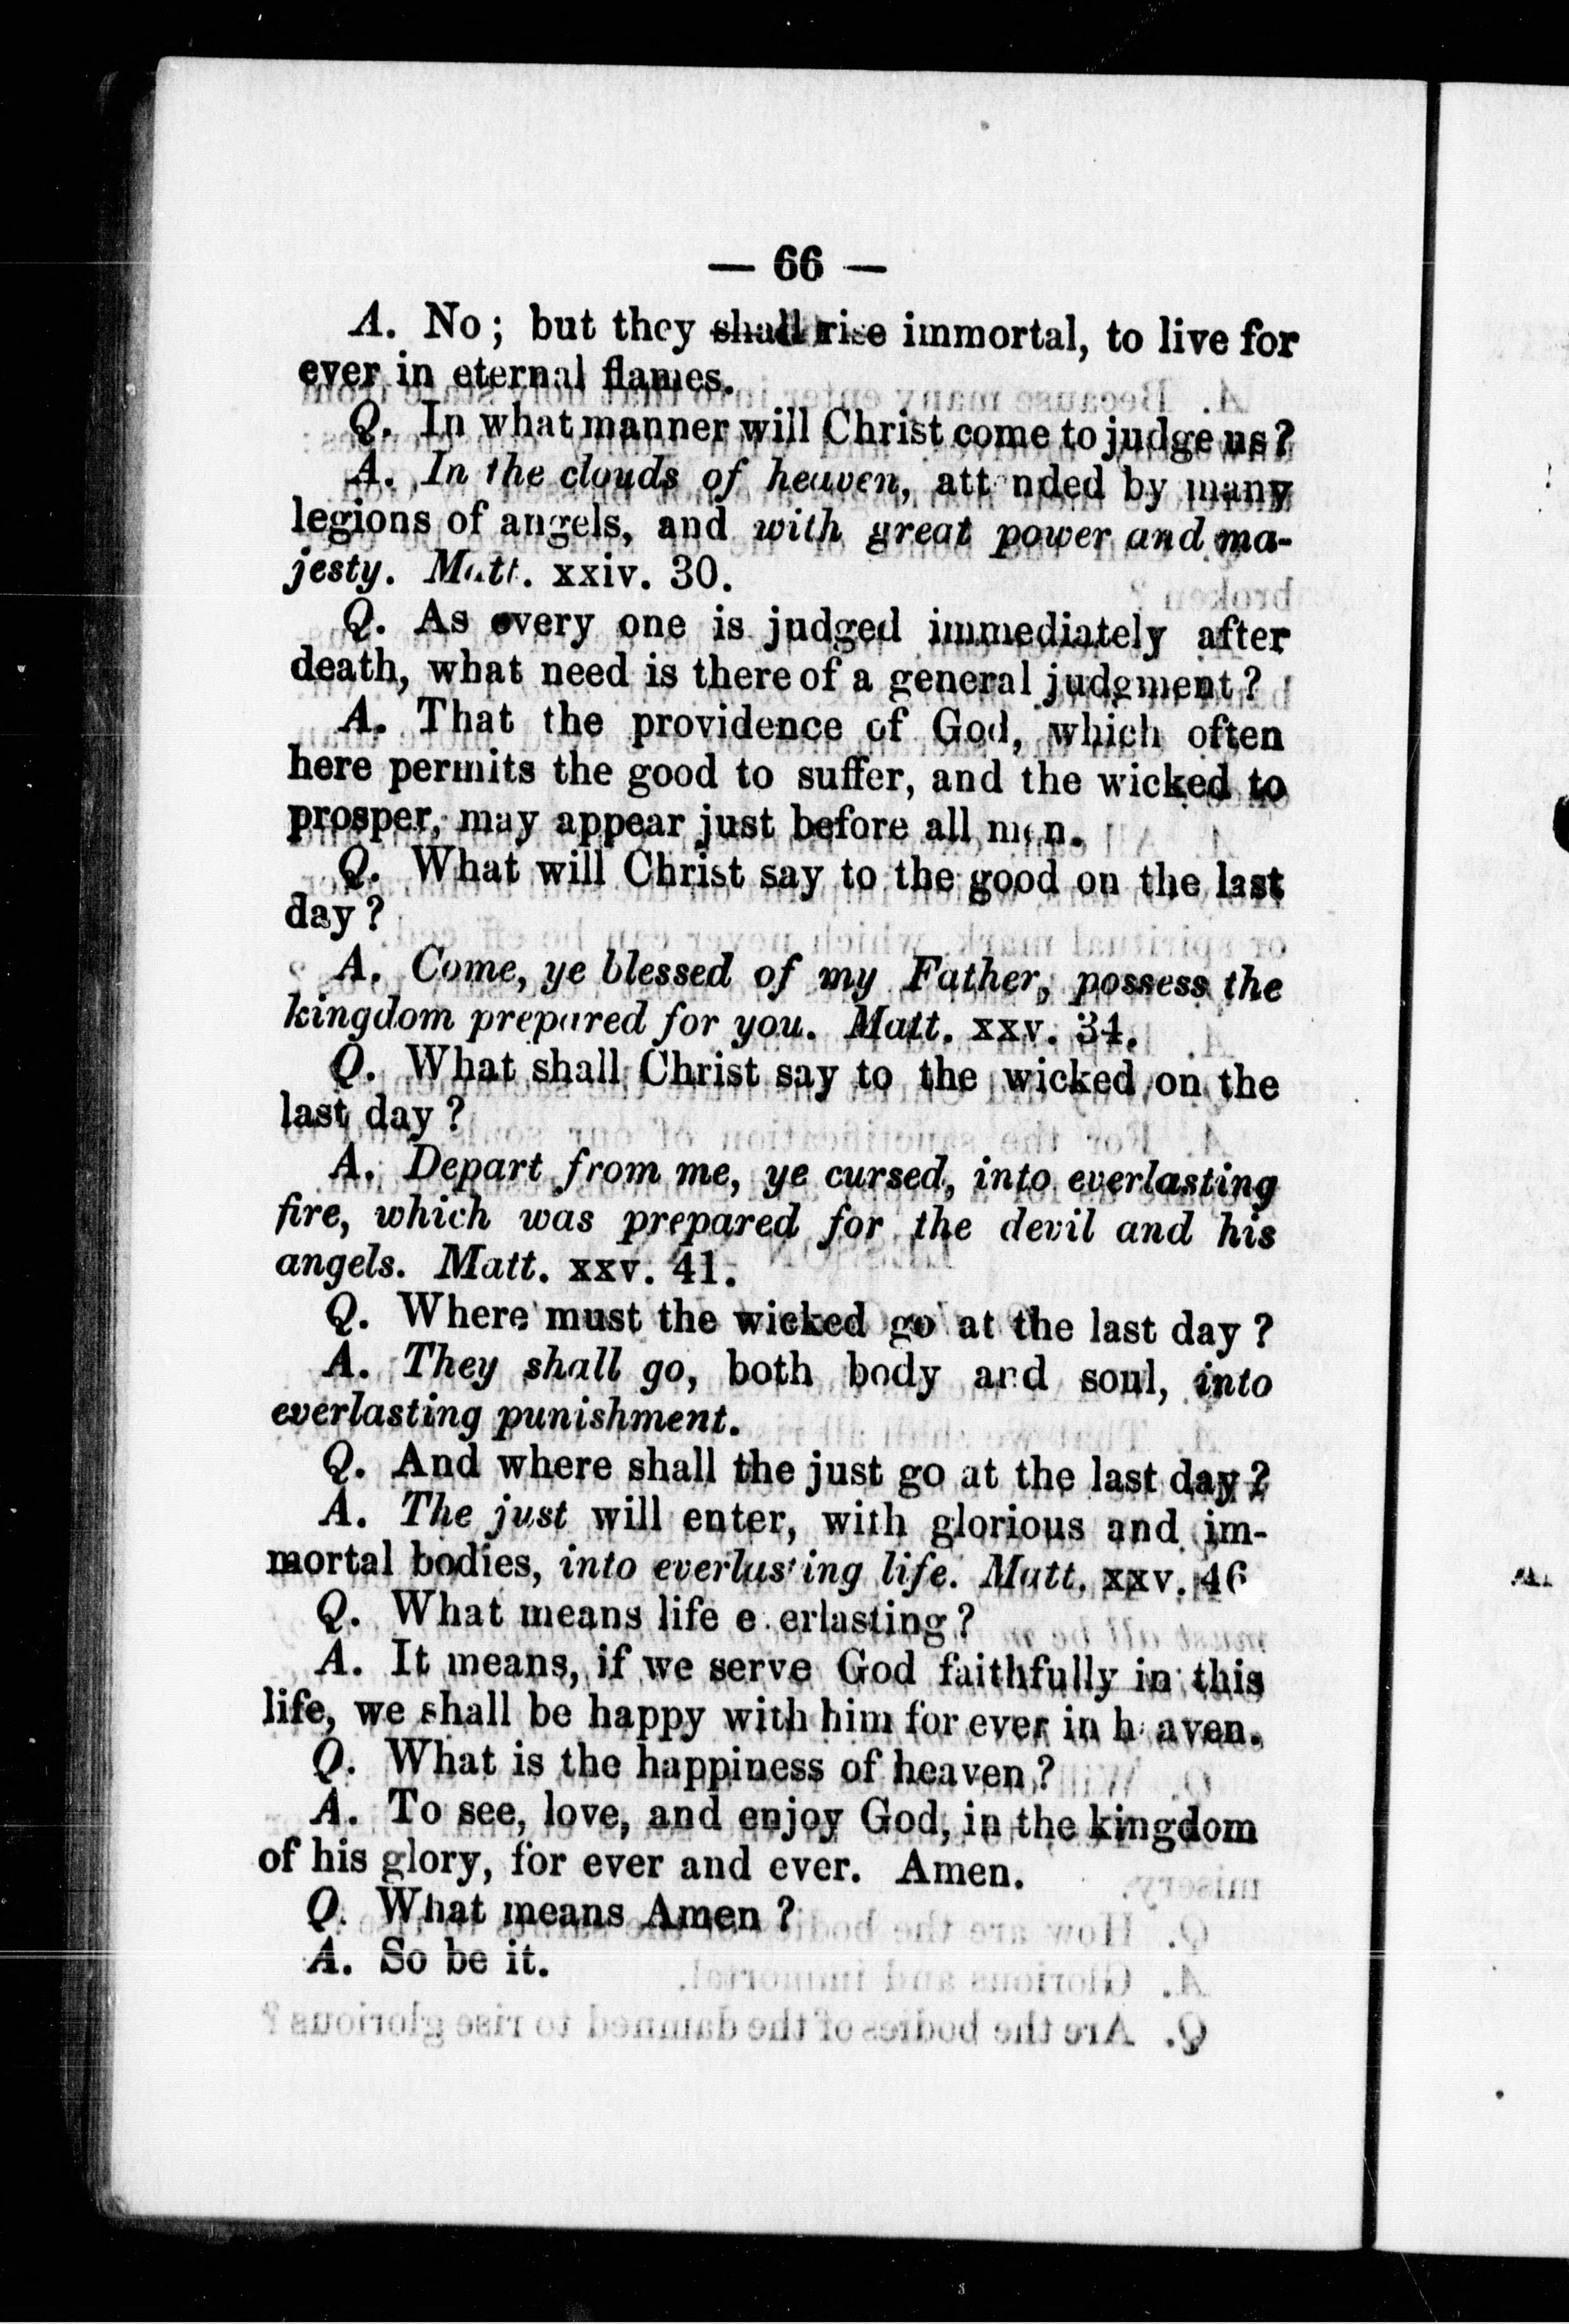 — 66 —
A. No; but they shall rise immortal, to live for
ever in eternal flames.
Q. In what manner will Christ come to judge us?
A. In the clouds of heaven, attended by many
legions of angels, and with great power and ma-
jesty. Matt. xxiv. 30.
Q. As every one is judged immediately after
death, what need is there of a general judgment?
A. That the providence of God, which often
here permits the good to suffer, and the wicked to
prosper, may appear just before all men.
Q. What will Christ say to the good on the last
day?
A. Come, ye blessed of my Father, possess the
kingdom prepared for you. Matt. xxv. 34.
Q. What shall Christ say to the wicked on the
last day?
A. Depart from me, ye cursed, into everlasting
fire, which was prepared for the devil and his
angels. Matt. xxv. 41.
Q. Where must the wicked go at the last day?
A. They shall go, both body and soul, into
everlasting punishment.
Q. And where shall the just go at the last day?
A. The just will enter, with glorious and im-
mortal bodies, into everlasting life. Matt. xxv. 46
Q. What means life everlasting?
A. It means, if we serve God faithfully in this
life, we shall be happy with him for ever in heaven.
Q. What is the happiness of heaven?
A. To see, love, and enjoy God, in the kingdom
of his glory, for ever and ever. Amen.
Q. What means Amen?
A. So be it.